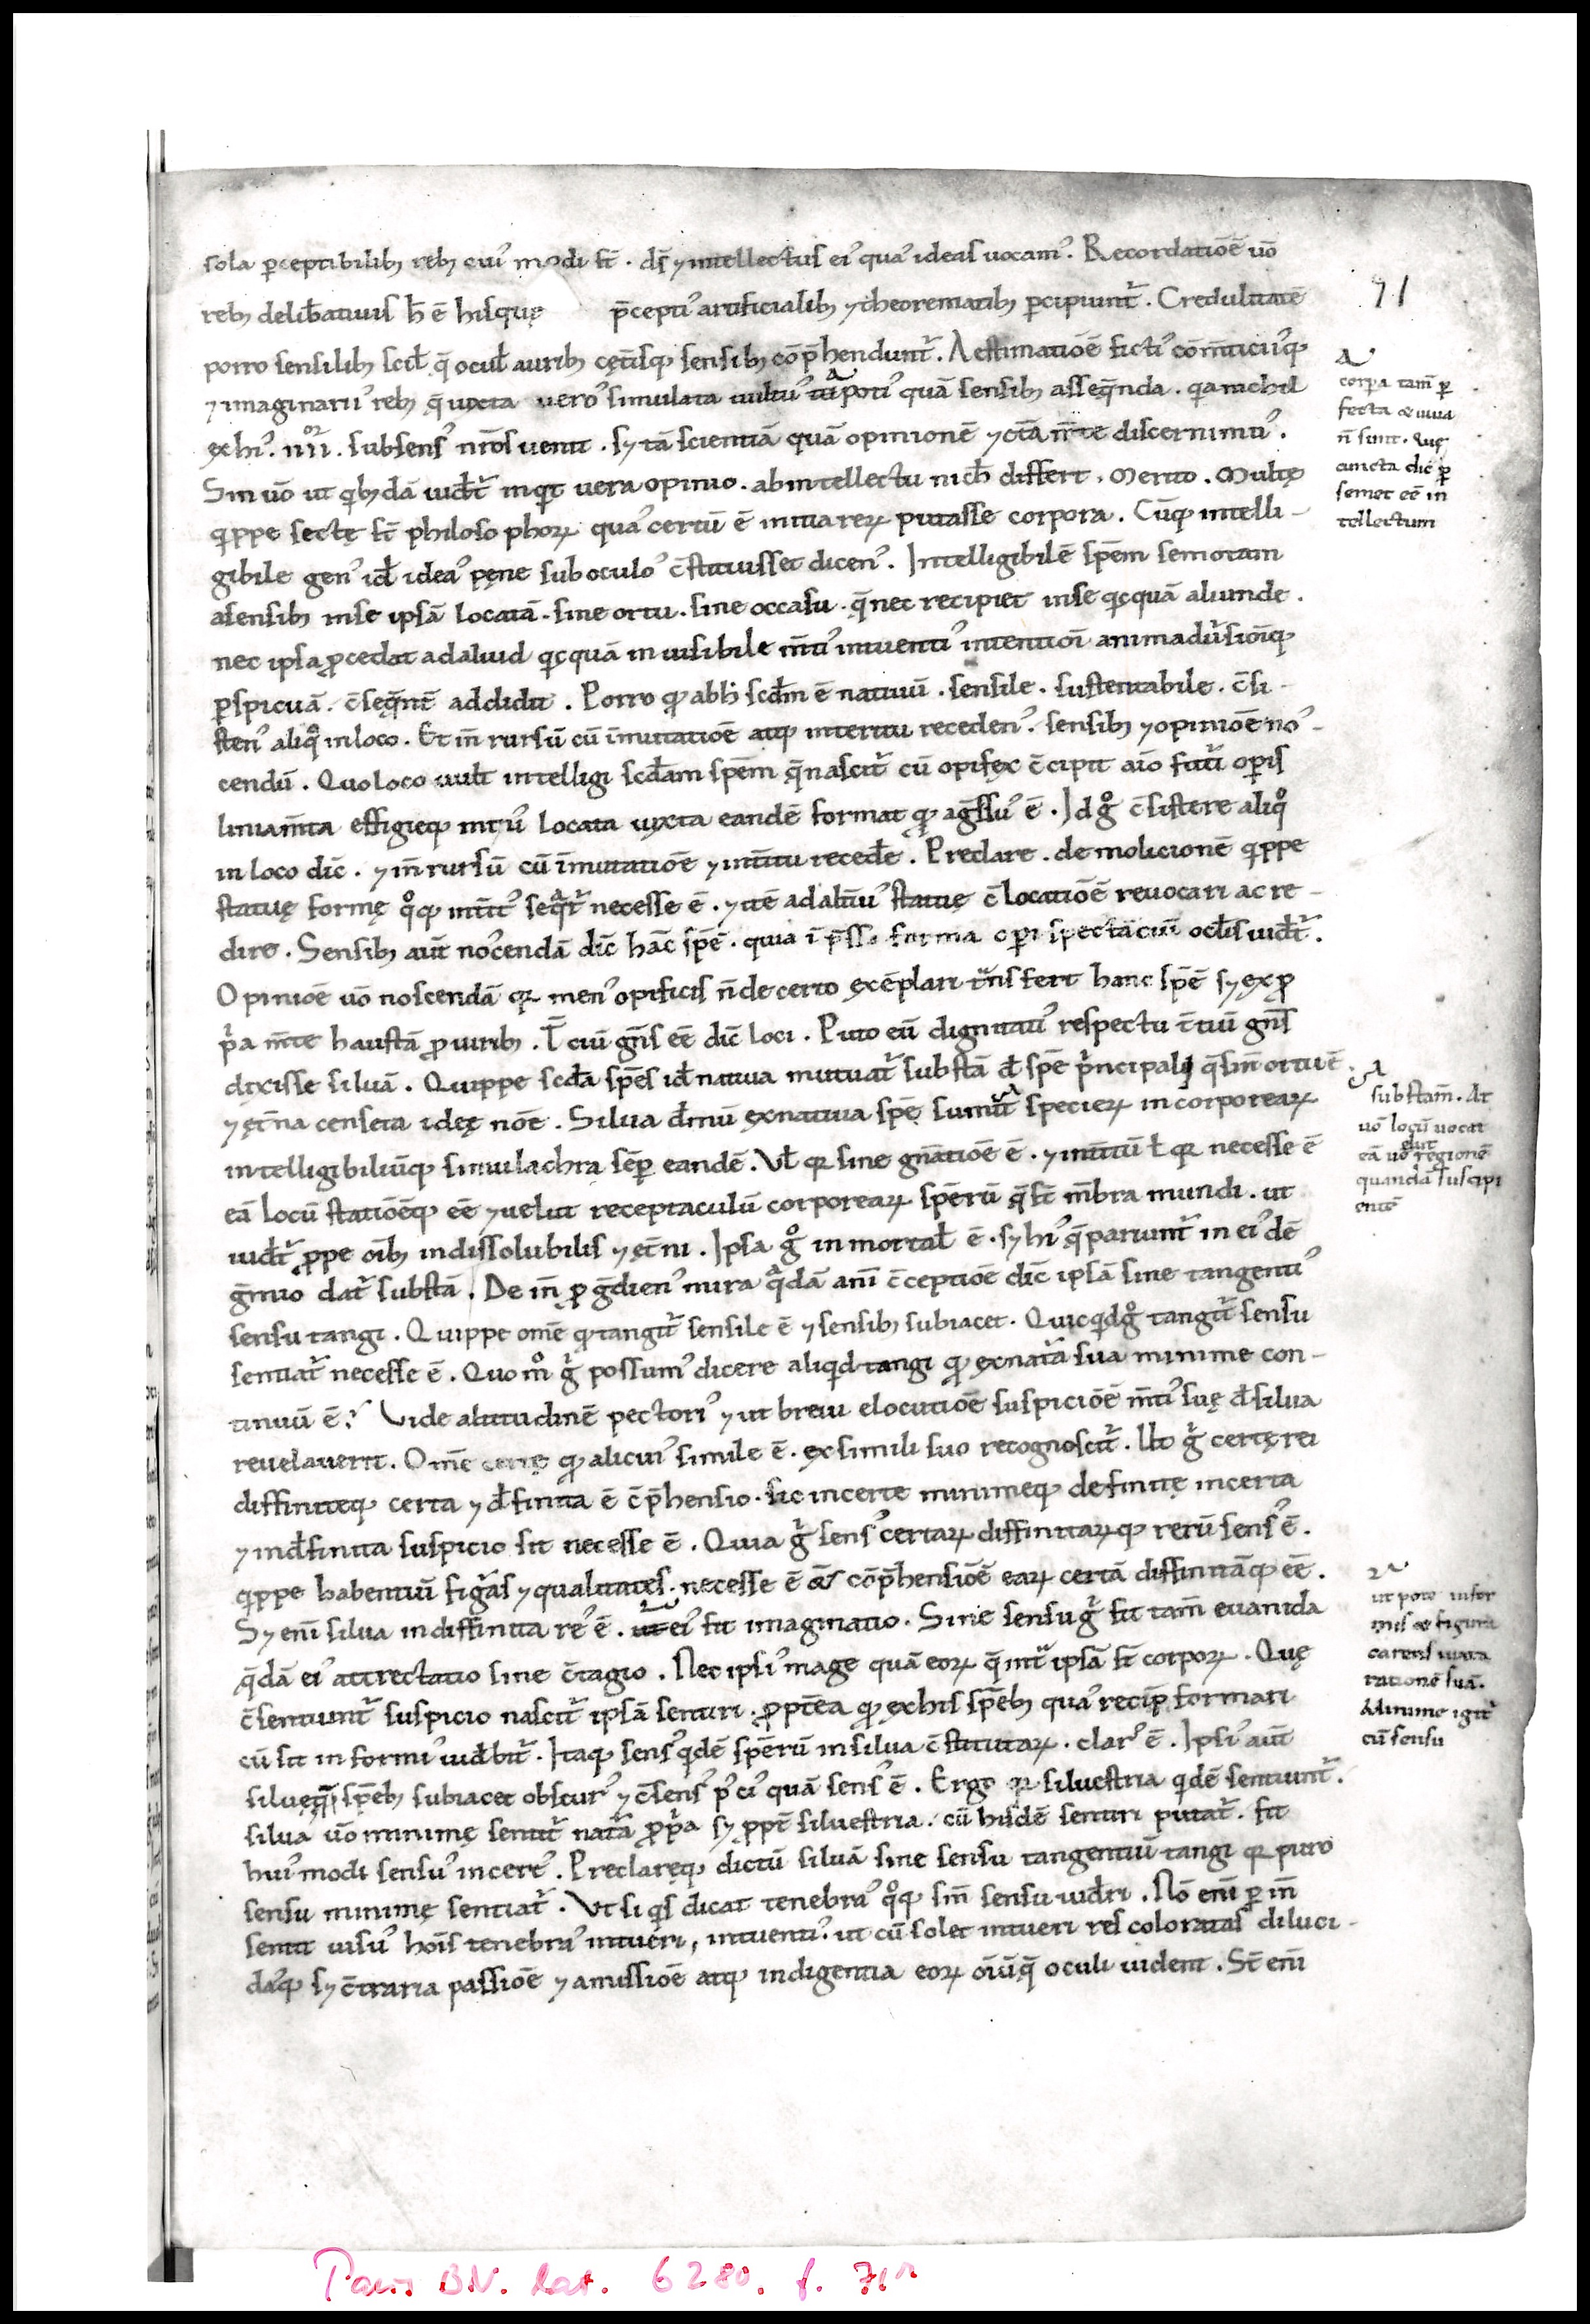 sola ꝑceptibilibꝫ rebꝫ cui᾽ modi st̄ . ds̄ ⁊ intellectus ei᾽ qua᾽ ideas uocam᾽. Recordatiōē uō
rebꝫ delib̄atiuis h̄ ē hisquę p̄cepti᾽ artificialibꝫ ⁊ theorematibꝫ ꝑcipiunt̄ . Credulitatē
porro sensilibꝫ scil̄ q̄ ocul̄ auribꝫ cęt̄isqꝫ sensibꝫ cōp̄hendunt̄ . Aestimatiōē ficti᾽ com̄ticii᾽qꝫ
⁊ imaginarii᾽ rebꝫ q̄ iuxta uero᾽ simulata uultu᾽ poti᾽ quā sensibꝫ asseq̄nda . qa nichil
ex hi᾽ . subsens᾽ nr̄os uenit . s⁊ tā scientiā quā opinionē ⁊ ctā m̄te discernimu᾽.
Sin uō ut qibꝫdā uidet̄ inqit uera opinio . ab intellectu nich̄ differt . Merito . Multę
qippe sectę st̄ philosophoꝝ qua᾽ certū ē intua reꝝ putasse corpora . Cūqꝫ intelli-
gibile gen᾽ id̄ idea᾽ pęne sub oculo᾽ c̄stituisset dicen᾽. Intelligibilē spēm semotam
a sensibꝫ in se ipsā locatā . sine ortu . sine occasu . q̄ nec recipiet in se qicquā aliunde .
nec ipsa ꝓcedat ad aliud qicquā inuisibile m̄ti᾽ intuenti᾽ intentioī animadūsiōīqꝫ
ꝑspicuā . c̄seq̄ntē addidit . Porro ꝙ ab h̄ scd̄m ē natiuū . sensile . sustentabile . c̄si-
sten᾽ aliqͦ in loco . Et in̄ rursū cū īmutatiōē atqꝫ interitu receden᾽. sensibꝫ ⁊ opiniōē no᾽-
cendū . Quo loco uult intelligi scd̄am spēm q̄ nascit̄ cū opifex c̄cipit aīo futūi opis
liniam̄ta effigieqꝫ int᾽ū locata iuxta eandē format ꝙ ag̃ssu᾽ ē . Id gͦ c̄sistere aliqͦ
in loco dic̄ . ⁊ in̄ rursū cū īmutatiōē ⁊ int̄itu recede̅ . Preclare . de molicionē qippe
statuę formę qͦqꝫ int̄it᾽ seqat̄ necesse ē . ⁊ itē ad alt̄iu᾽ statuę c̄locatiōē reuocari ac re-
dire . Sensibꝫ aut̄ no᾽cendā dic̄ hāc spē̄ . quia ī p̄ssa forma opi spectaciū ocl̄is uidet̄ .
Opiniōē uō noscendā qꝛ men᾽ opificis n̄ de certo exēplari tn̄sfert hanc spē̄ s⁊ ex ꝓ
pͥa m̄te haustā ꝓ uiribꝫ . T̄ ciū gn̄is eē dic̄ loci . Puto eū dignitati᾽ respectu t̄tiū gn̄s
dixisse siluā . Quippe scd̄a spēs id̄ natiua mutuat̄ substā d̄ spē pͥncipali q̄ sin̄ ortu ē
⁊ ęt̄na censeta idęę nōē . Siluā d̄mū ex natiua spē̄ sumit̄ specieꝝ incorporeaꝝ
intelligibiliūqꝫ simulachra sēꝑ eandē . Ut̄ qꝛ sine gn̄atiōē ē . ⁊ int̄itū t̄ qꝛ necesse ē
eā locū statiōēqꝫ eē ⁊ uelut receptaculū corporeaꝝ spērū q̄ st̄ m̄bra mundi . ut
uidet̄ ꝓpe oībꝫ indissolubilis ⁊ ęt̄ni . Ipsa gͦ inmortal̄ ē . s⁊ hi᾽ q̄ pariunt̄ in ei᾽dē
g̃mio dat̄ substā . De in̄ ꝓg̃dien᾽ mira q̄dā anī c̄ceptiōē dic̄ ipsā sine tangenti᾽
sensu tangi . Quippe om̄e ꝙ tangit̄ sensile ē ⁊ sensibꝫ subiacet . Quicqid gͦ tangit̄ sensu
sentiat̄ necesse ē . Quo mͦ gͥ possum᾽ dicere aliqid tangi ꝙ ex nat̄a sua minime con-
tinuū ē ? Uide altitudinē pectori᾽ ⁊ ut breui elocutiōē suspiciōē m̄ti᾽ suę d̄ silua
reuelauerit . Om̄e certę ꝙ alicui᾽ simile ē . ex simili suo recognoscit̄ . Ut gͥ certę rei
diffinitęqꝫ certa ⁊ d̄finita ē c̄p̄hensio . sic incerte minimeqꝫ definitę incerta
⁊ ind̄finita suspicio sit necesse ē . Quia gͥ sens᾽ certaꝝ diffinitaꝝqꝫ rerū sens᾽ ē .
qippe habentiū figās ⁊ qualitates . necesse ē cōp̄hensiōē eaꝝ certā diffinitāqꝫ eē .
S⁊ enī silua indiffinita re᾽ ē . ei᾽ fit imaginatio . Sine sensu gͥ fit tam̄ euanida
q̄dā ei᾽ attrectatio sine c̄tagio . Nec ipsi᾽ mage quā eoꝝ q̄ int̄ ipsā st̄ corpoꝝ . Quę
c̄sentiunt̄ suspicio nascit̄ ipsā sentiri . ꝓpt̄ea ꝙ ex his spēbꝫ qua᾽ recip̄ formari
cū sit informi᾽ uidebit̄ . Itaqꝫ sens᾽ qidē spērū in silua c̄stitutaꝝ . clar᾽ ē . Ipsi᾽ aut̄
siluę spēbꝫ subiacet obscur᾽ ⁊ c̄sens᾽ p᾽ci᾽ quā sens᾽ ē . Ergo qꝛ siluestria qidē sentiunt̄ .
silua uō minimę sentit̄ nat̄a ꝓpͥa s⁊ ꝓpt̄ siluestria . cū hisdē sentiri putat̄ . fit
hui᾽modi sensu᾽ incere᾽. Preclaręqꝫ dictū siluā sine sensu tangentiū tangi qꝛ puro
sensu minimę sentiat̄ . Ut si qis dicat tenebra᾽ qͦqꝫ sin̄ sensu uideri . Nō enī ꝑ in̄
sentit uisu᾽ hoīs tenebra᾽ intueri, intuenti᾽. ut cū solet intueri res coloratas diluci-
da᾽qꝫ s⁊ c̄traria passiōē ⁊ amissiōē atqꝫ indigentia eoꝝ oīūq̄ oculi uident . St̄ enī
71
corpa tam̄ ꝑ
fecta & uiua
n̄ sunt . Quę
cuncta dic̄ ꝑ
semet eē in
tellectum
substam̄ . At
uō locū uocat
eā uō regionē
quandā suscipi
entē
ut pote infor
mis & figura
carens iuxta
rationē suā .
Minime igit̄
cū sensu
Paris BN. lat. 6280. f. 71r